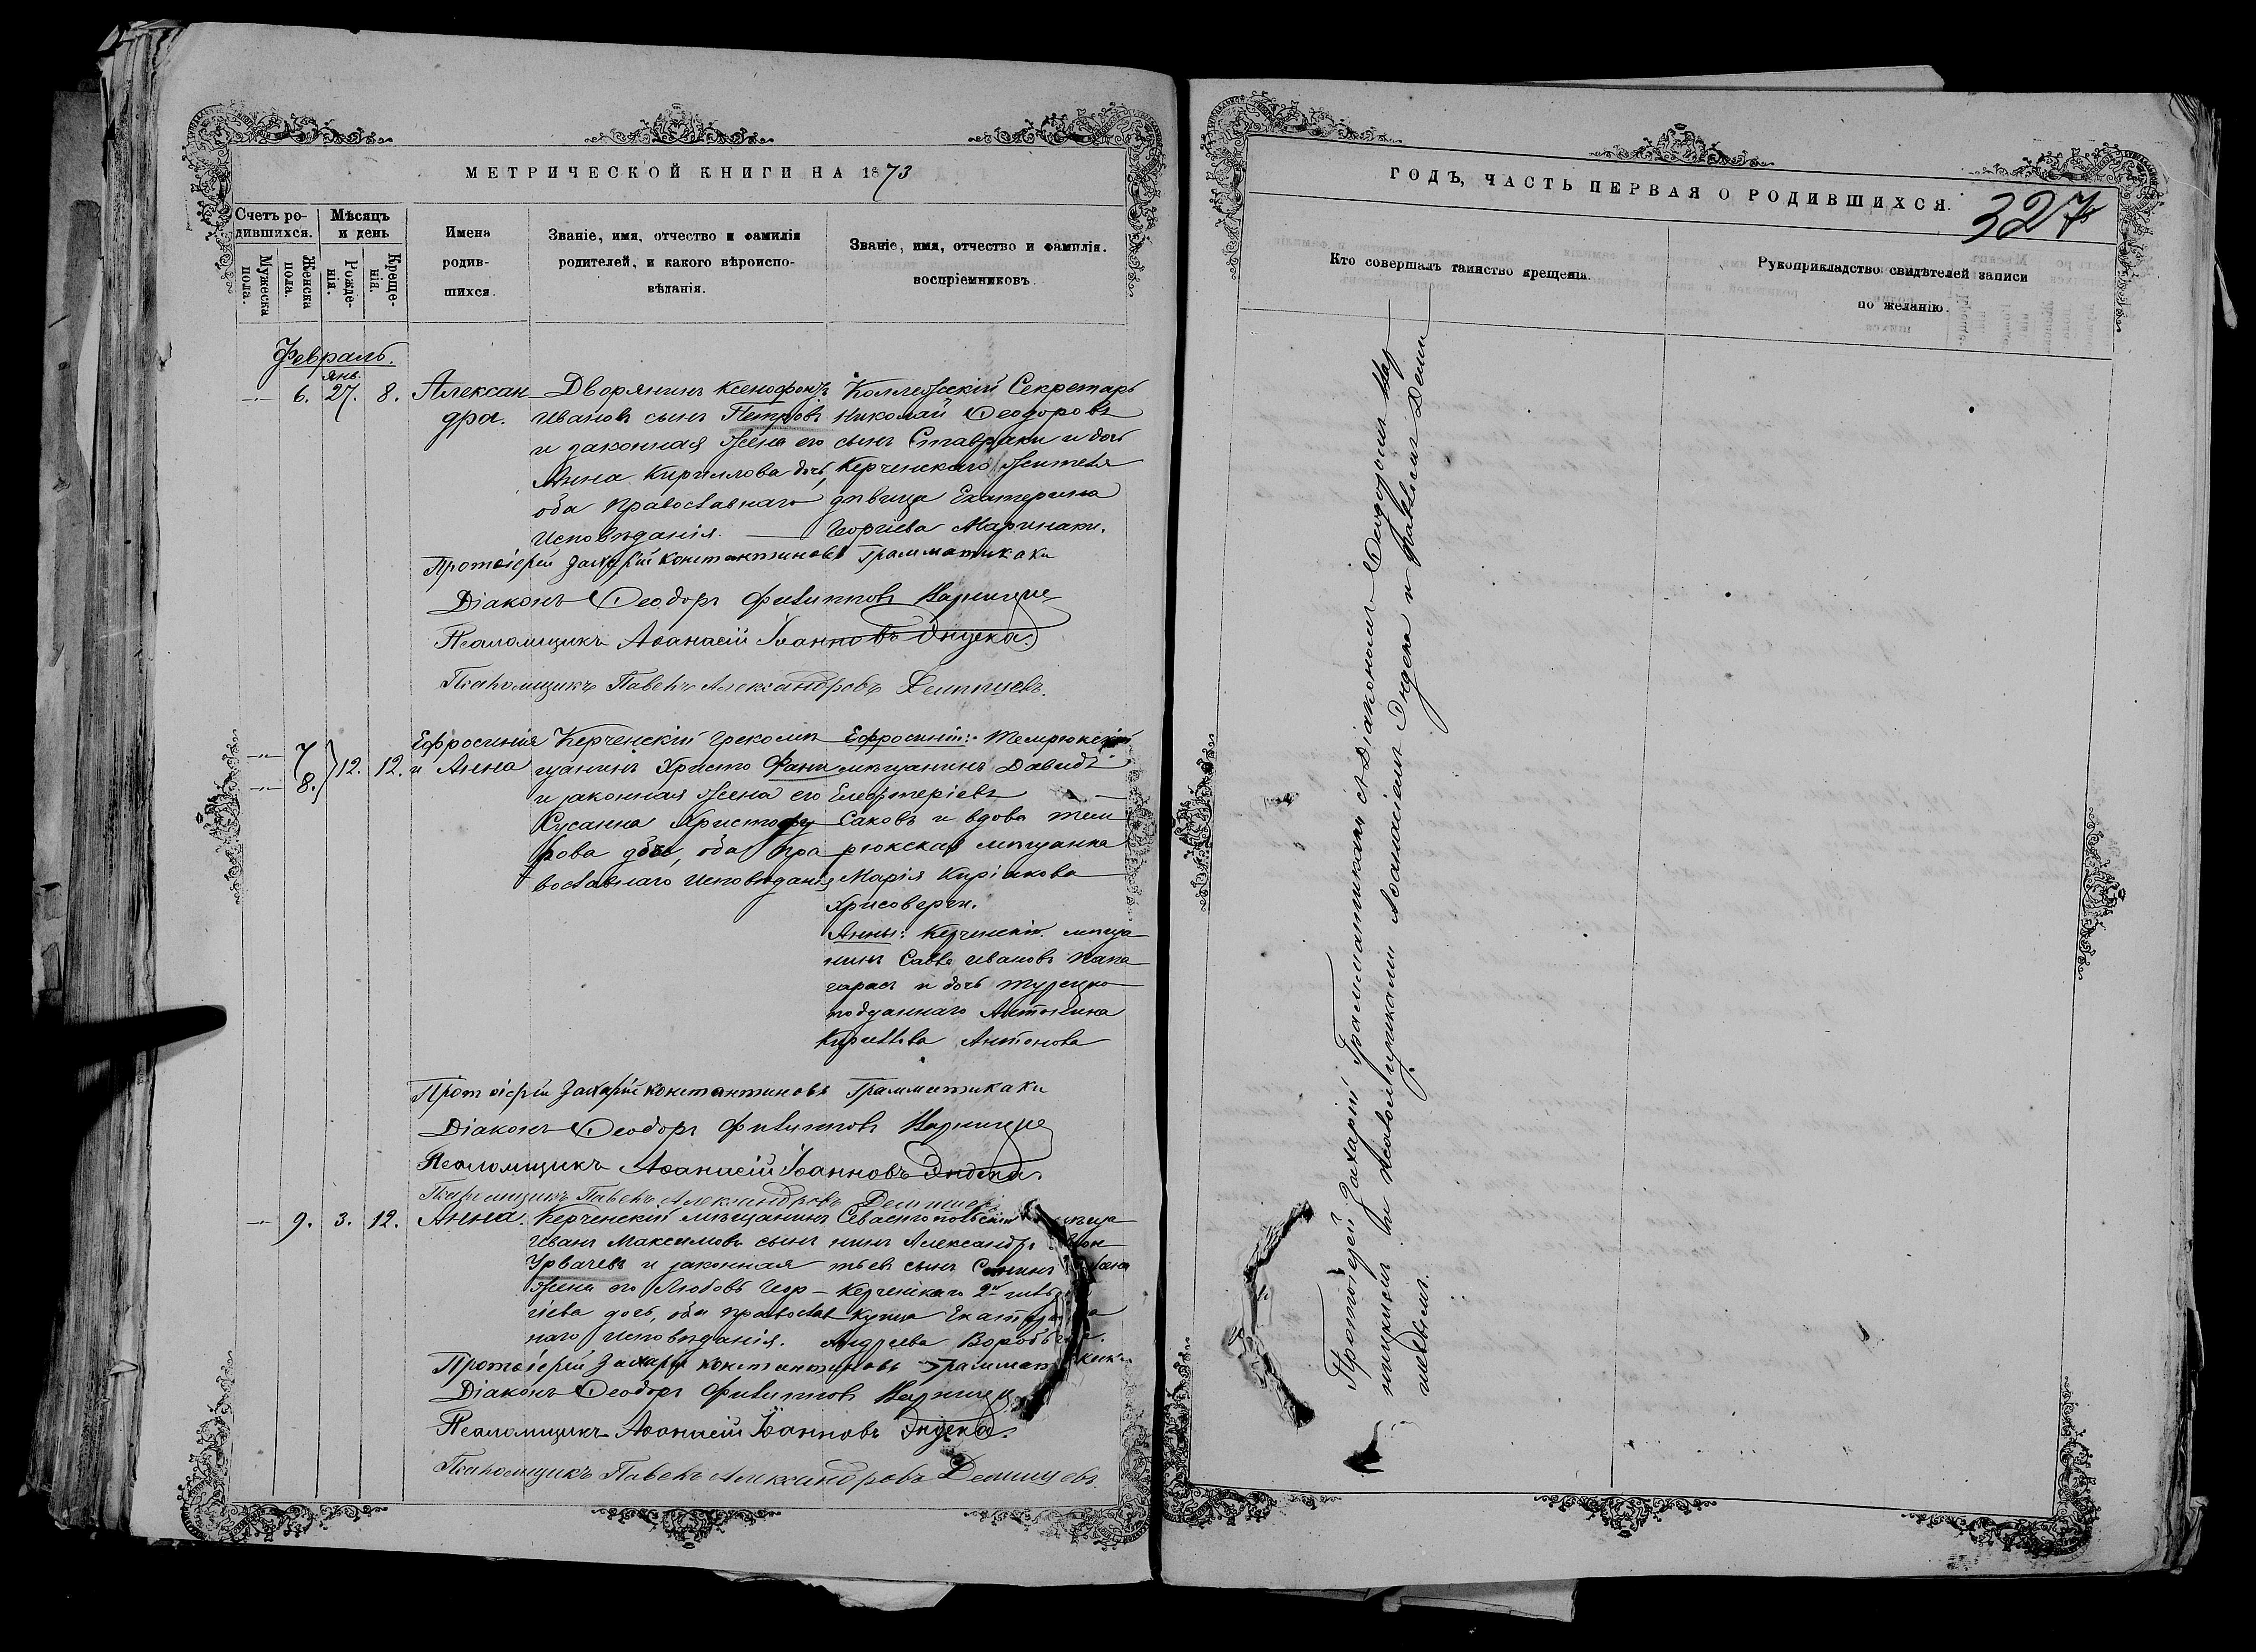 МЕТРИЧЕСКОЙ КНИГИ НА 1873
Счетъ ро-
дившихся.
Мѣсяцъ
и день
Мужеска
пола.
Женска
пола.
Рожде-
нія.
Креще-
нія.
Имена
родив-
шихся.
Званіе, имя, отчество и фамилія
родителей, и какого вѣроиспо-
вѣданія.
Званіе, имя, отчество и фамилія.
воспріемниковъ.
Февраль.
Янв.
6. 27. 8.
Алексан
дра.
Дворянинъ Ксенофонтъ
Ивановъ сынъ Петровъ
и законная жена его
Анна Кириллова дочь,
оба православнаго
исповѣданія.
Коллежскій Секретарь
Николай Ѳеодоровъ
сынъ Ставраки и дочь
Керченскаго жителя
дѣвица Екатерина
Георгіева Маринаки.
Протоіерей Захарій Константиновъ Грамматикаки
Діаконъ Ѳеодоръ Филипповъ
Псаломщикъ Аѳанасій Іоанновъ Эндека.
Псаломщикъ Павелъ Александровъ
7
8. 12. 12.
Ефросинія
и Анна
Керченскій грекъ мѣ
щанинъ Христо Фани
и законная жена его
Сусанна Христофо
рова дочь, оба пра
вославнаго исповѣданія
Ефросиніи: Темрюкскій
мѣщанинъ Давидъ
Елефтеріевъ
Саковъ и вдова тем
рюкская мѣщанка
Марія Кирьякова
Хрисоверги.
Анны: Керченскій мѣща
нинъ Савва Ивановъ
и дочь турецко
подданнаго Антонина
Кириллова Антонова
Протоіерей Захарій Константиновъ Грамматикаки
Діаконъ Ѳеодоръ Филипповъ
Псаломщикъ Аѳанасій Іоанновъ Эндека.
Псаломщикъ Павелъ Александровъ
9. 3. 12.
Анна.
Керченскій мѣщанинъ
Иванъ Максимовъ сынъ
Урвачевъ и законная
жена его Любовь Геор-
гіева дочь, оба православ
наго исповѣданія.
Севастопольскій мѣща
нинъ Александръ
тьевъ сынъ
Керченскаго 2й гильд
купца Екатерина
Андреева
Протоіерей Захарій Константиновъ Грамматикаки
Діаконъ Ѳеодоръ Филипповъ
Псаломщикъ Аѳанасій Іоанновъ Эндека.
Псаломщикъ Павелъ Александровъ
ГОДЪ, ЧАСТЬ ПЕРВАЯ О РОДИВШИХСЯ.
327
Кто совершалъ таинство крещенія.
Рукоприкладство свидѣтелей записи
по желанію.
Протоіерей Захарій Грамматикаки съ Діакономъ Ѳеодоромъ
и псаломщиками Аѳанасіемъ Эндека и Павломъ